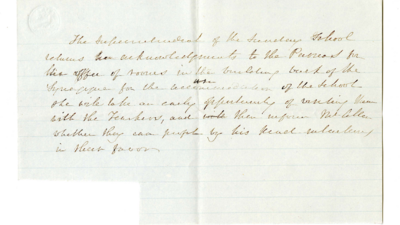 The Superintendent of the Sunday School
returns her acknowledgments to the Parnas for
his offer of rooms in the building back of the
Synagogue for the accommodation of the School
she will take an early opportunity of visiting them
with the Teachers, and then inform Mr
whether they can by his kind
in their favor